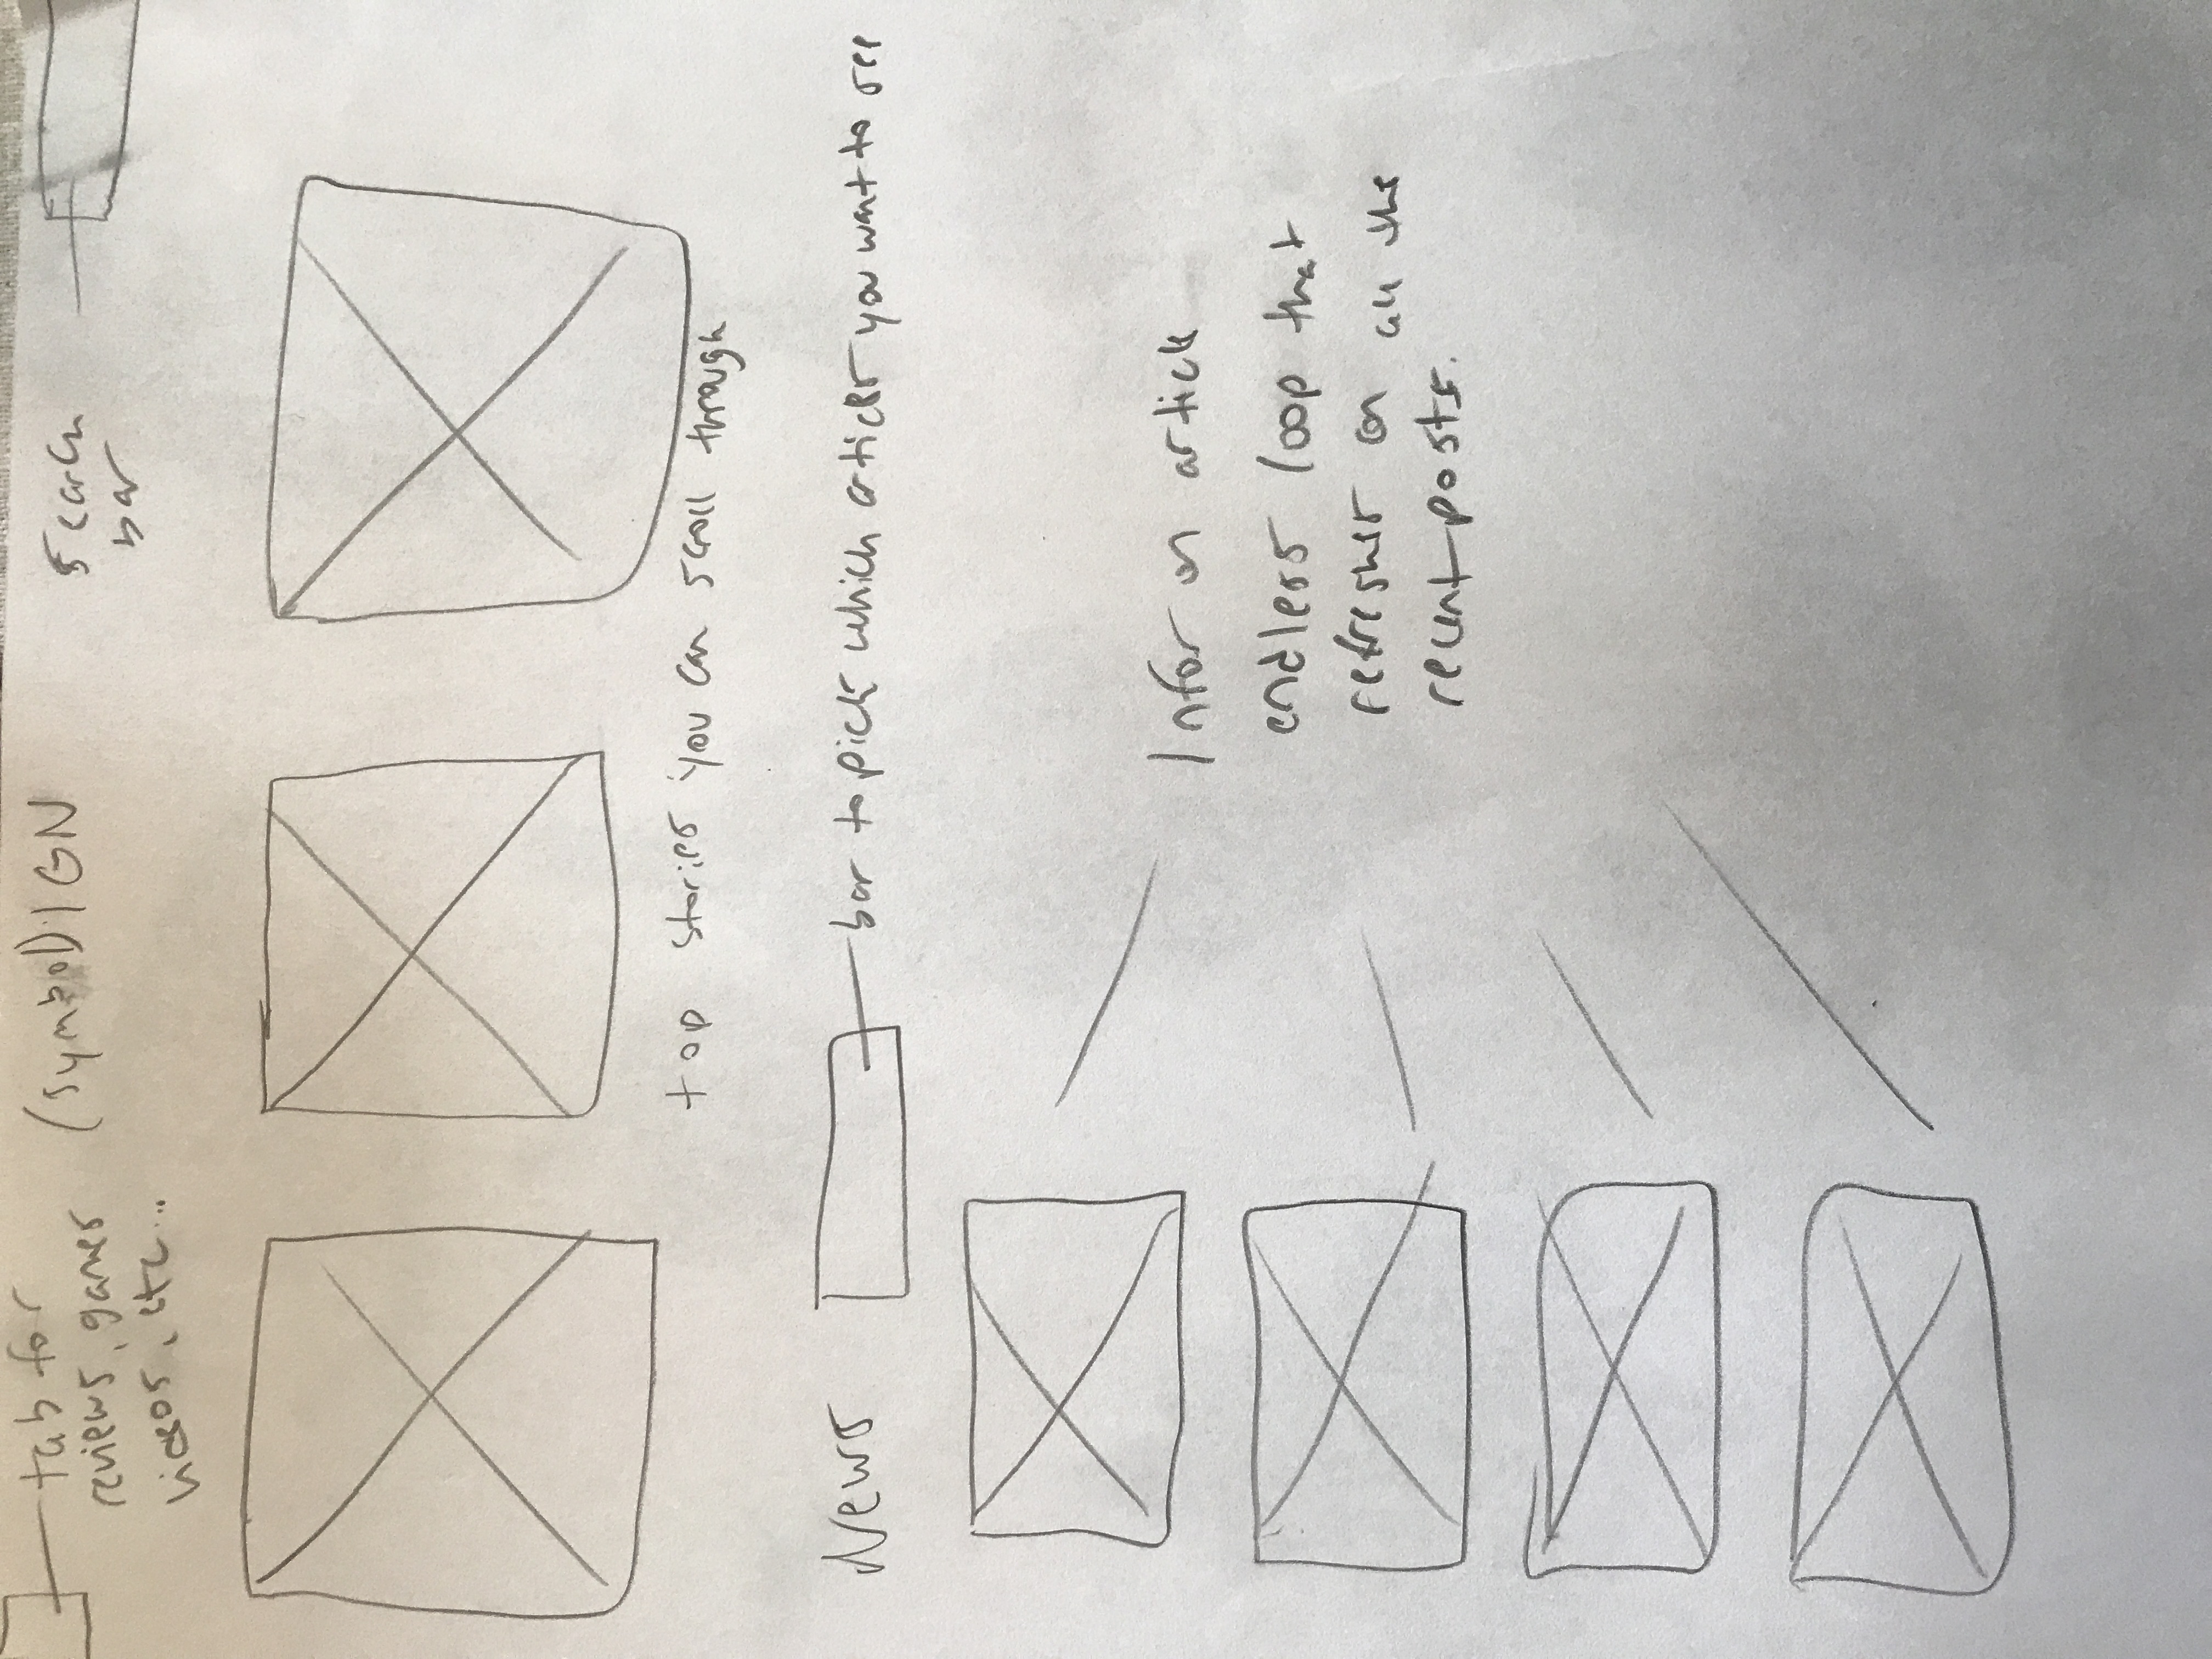 tab for
reviews, games
videos, etc...
(symbol) IGN
search
bar
top stories you can scroll through
News
bar to pick which articles you want to see
Infor on article
endless loop that
refreshes on all the
recent posts.